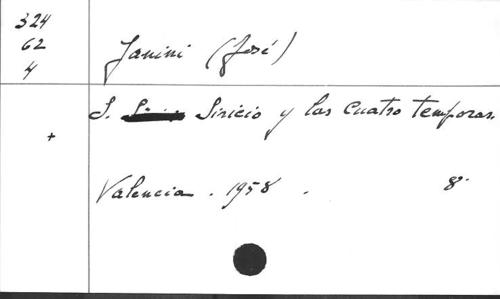 324
62
4
Janini (José)
S. Siricio y las cuatro temporas.
+
Valencia . 1958 . 8º